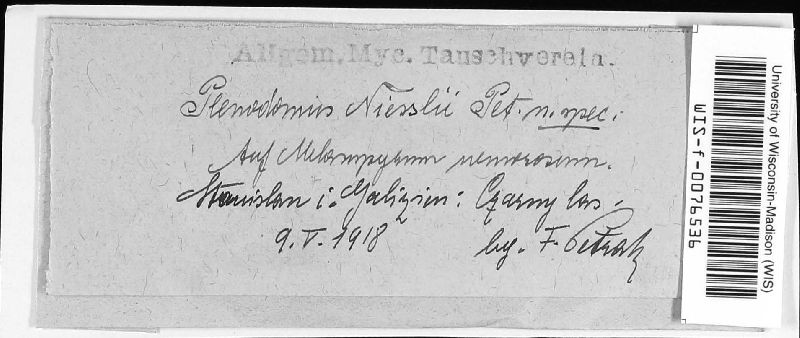 Allgem. Myc. Tauschverein.
Plenodomus Niesslii Pet. n. spec.
Auf Melampyrum nemorosum.
Stanislau i. Galizien: Czarny las.
9. V. 1918
leg. F. Petrak
University of Wisconsin-Madison (WIS)
WIS-f-0076536